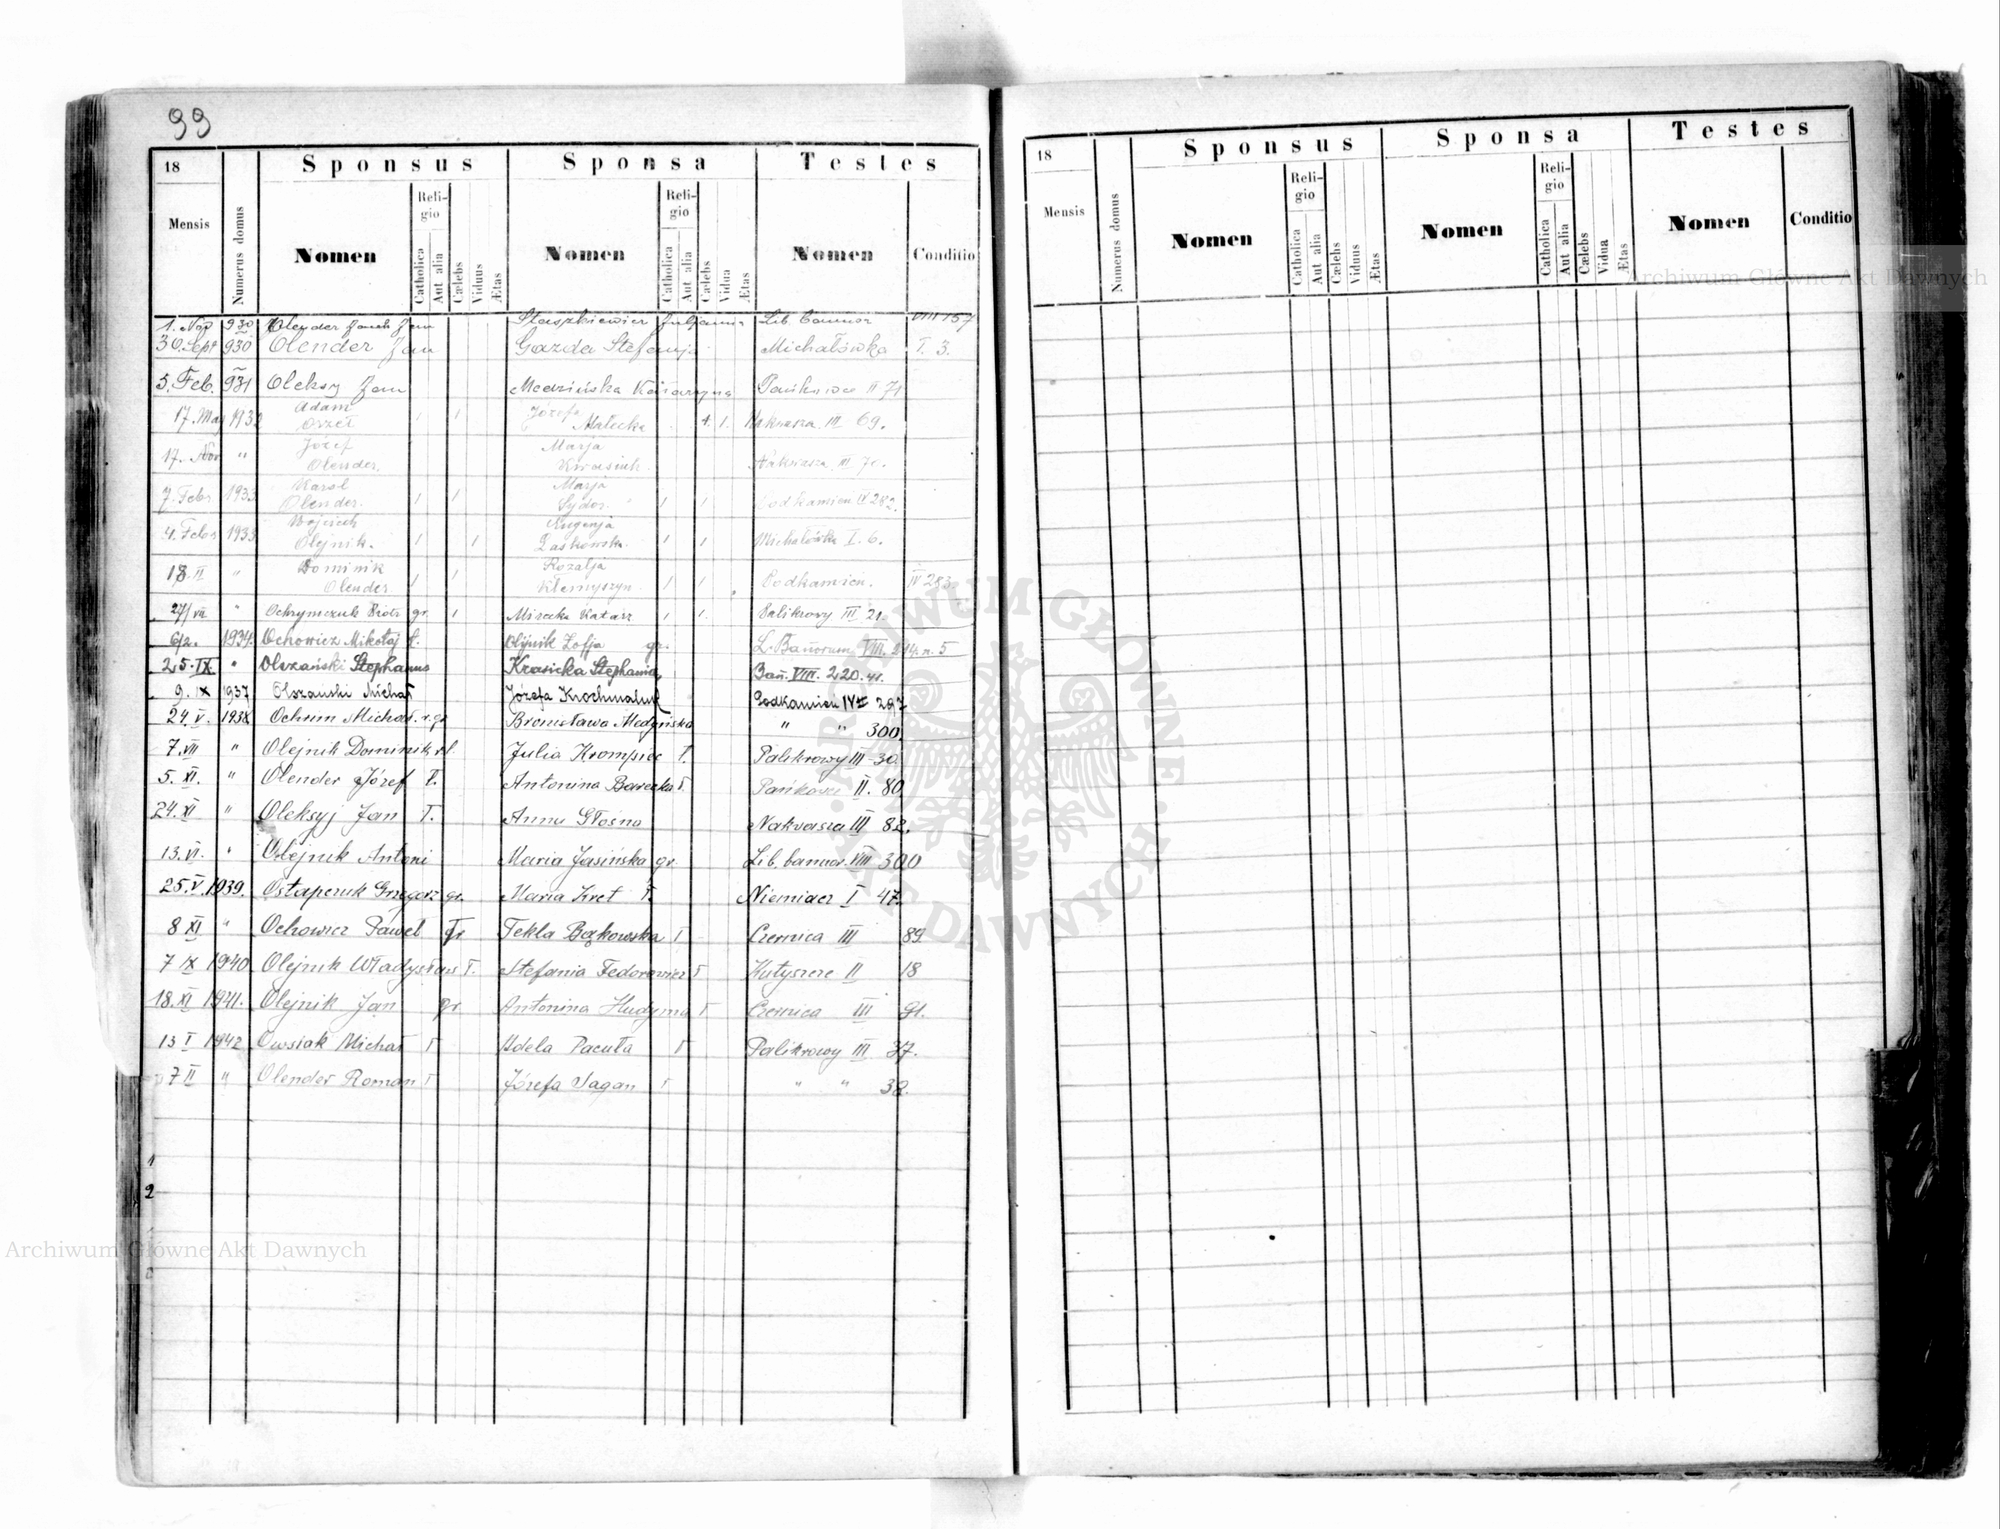 99
18 Sponsus Sponsa Testes
Mensis Numerus domus Nomen Religio Catholica Aut alia Cælebs Viduus Ætas Nomen Religio Catholica Aut alia Cælebs Vidua Ætas Nomen Conditio
1. Nov 930 Olender Jan Staszkiewicz Lib. VIII 157
30. Sept 930 Olender Jan Gazda Stefanja Michałówka I. 3.
5. Feb. 931 Oleksy Jan Medzińska Katarzyna Pańkowce II 71
17. May 1932 Adam Józefa Małecka Nakwasza III 69.
17. Nov " Józef Olender Marja Nakwasza III 70.
7. Febr 1933 Karol Olender Marja Sydor Podkamień IV 282.
4. Febr 1933 Wojciech Olejnik. Eugenja Laskowska Michałówka I. 6.
18. II " Dominik Olender Rozalja Klemyszyn Podkamień. IV 283
27/VII " Ochrymczuk Piotr gr. Katarz Palikrowy III 21.
6/2. 1934. Ochowicz Mikołaj ł. Olijnik Zofja gr. L. Banorum VIII. 214. n. 5
25. IX. " Olszański Stephanus Krasicka Stephania Bań. VIII. 220. 41.
9. IX 1937 Olszański Michał Józefa Krochmaluk Podkamień IV 297
24. V. 1938 Ochrim Michał r. gr Bronisława Medyńska " " 300.
7. VII " Olejnik Dominik rł. Julia Krompiec ł. Palikrowy III 30
5. XI. " Olender Józef ł. Antonina Barecka ł. Pańkowce II. 80
24. XI " Oleksyj Jan ł. Anna Głośna Nakwasza III 82.
13. VI. " Olejnik Antoni Maria Jasińska gr. Lib. banor. VIII 300
25. V. 1939. Ostapczuk Grzegorz gr. Maria Kret ł. Niemiacz I 47.
8 XI " Ochowicz Paweł gr Tekla Bąkowska ł Czernica III 89
7 IX 1940 Olejnik Władysław ł. Stefania Fedorowicz ł Kutyszcze II 18
18. XI 1941. Olejnik Jan gr Antonina Hudyma ł Czernica III 91.
13 I 1942 Owsiak Michał ł Adela Pacuła ł Palikrowy III 37.
7 II " Olender Roman ł Józefa Sagan ł " " 38
1
2
18 Sponsus Sponsa Testes
Mensis Numerus domus Nomen Religio Catholica Aut alia Cælebs Viduus Ætas Nomen Religio Catholica Aut alia Cælebs Vidua Ætas Nomen Conditio
Archiwum Główne Akt Dawnych
Archiwum Główne Akt Dawnych
ARCHIWUM GŁÓWNE AKT DAWNYCH